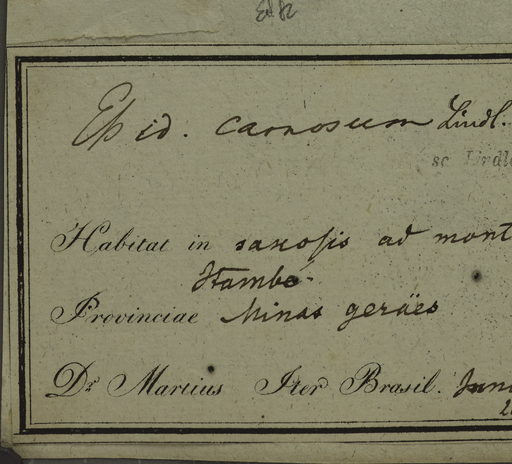 Epid. carnosum Lindl.
sc Lindle
Habitat in saxosis ad mont
Itambé
Provinciae Minas geräes
Dr Martius Iter Brasil. Juni